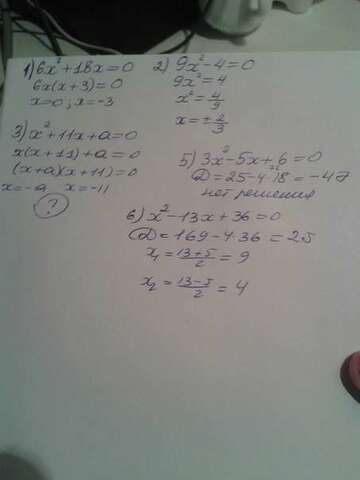 1) 6x² + 18x = 0
6x(x + 3) = 0
x = 0; x = -3
2) 9x² - 4 = 0
9x² = 4
x² = 4/9
x = ± 2/3
3) x² + 11x + a = 0
x(x + 11) + a = 0
(x + a)(x + 11) = 0
x = -a x = -11
?
5) 3x² - 5x + 6 = 0
D = 25 - 4·18 = -47
нет решения
6) x² - 13x + 36 = 0
D = 169 - 4·36 = 25
x₁ = (13+5)/2 = 9
x₂ = (13-5)/2 = 4